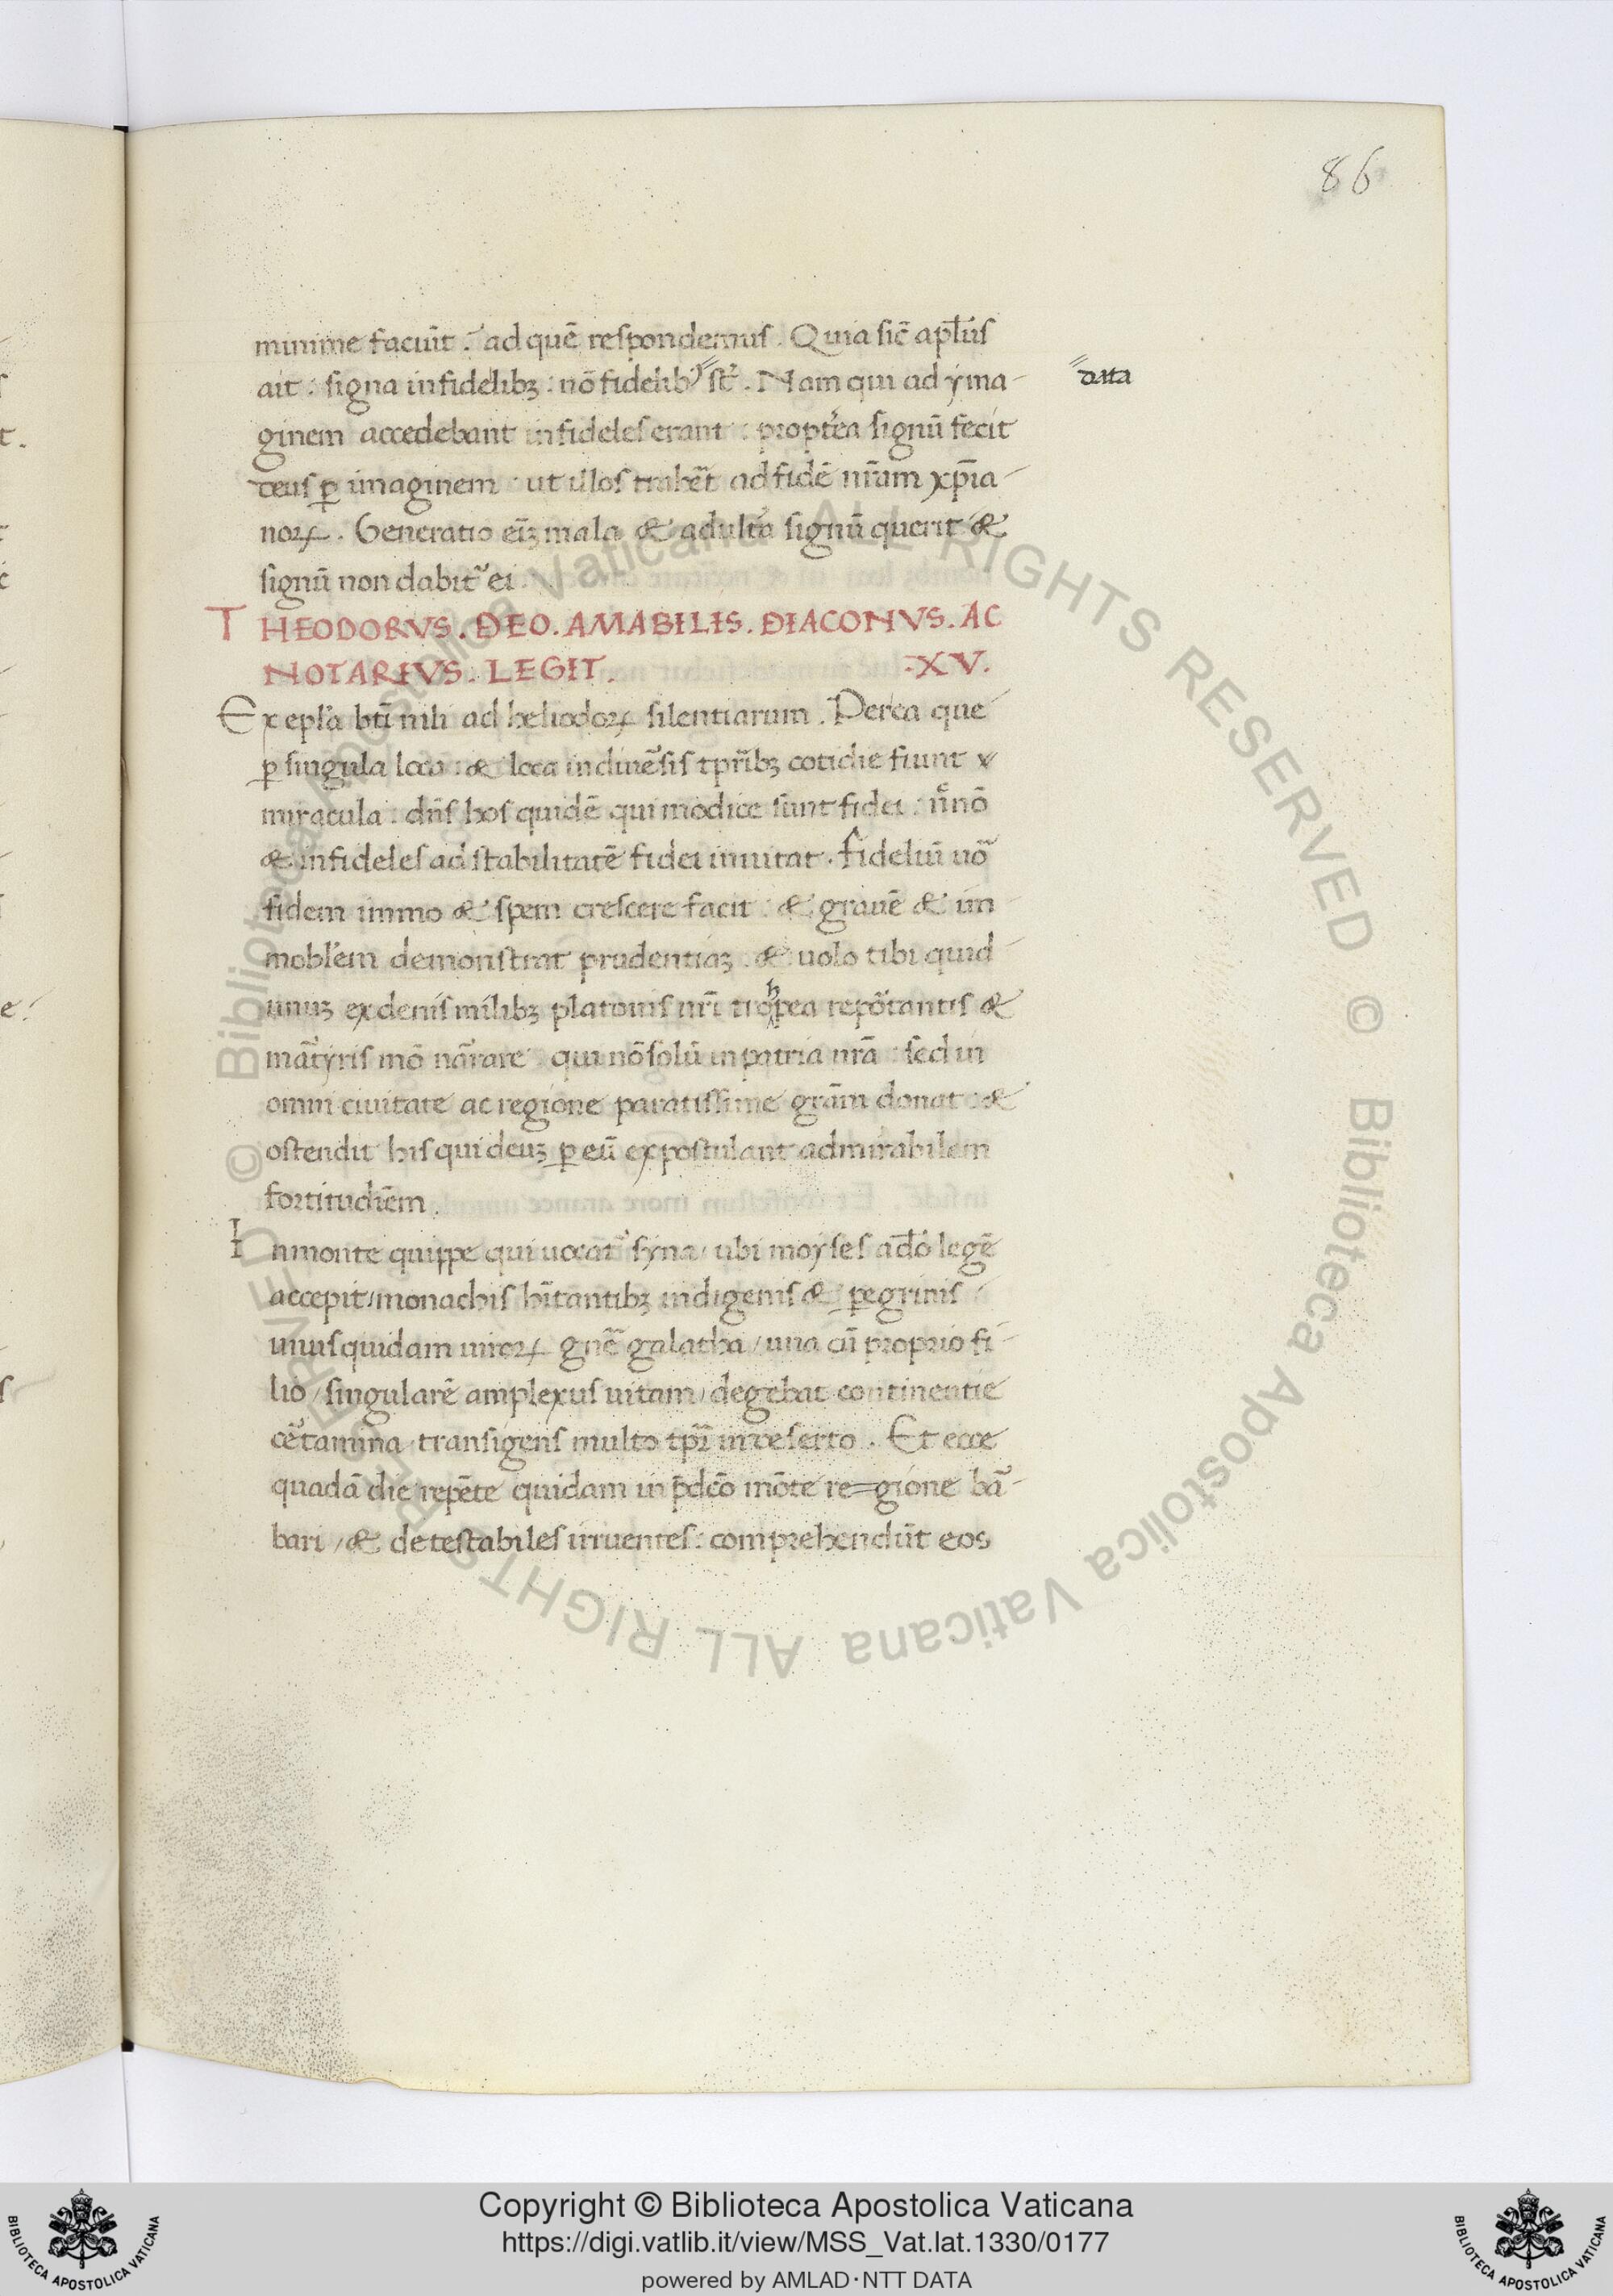 86
minime faciūt. ad quē respondemus. Quia sic̄ apl̄us
ait: signa infidelibꝫ: nō fidelibꝰ st̄. Nam qui ad yma-
data
ginem accedebant infideles erant: propt̄ea signū fecit
deus ꝑ imaginem: ut illos trahēt ad fidē nr̄am xp̄ia-
noꝝ. Generatio eī mala & adult̄a signū querit &
signū non dabit᷑ ei.
THEODORVS. DEO. AMABILIS. DIACONVS. AC
NOTARIVS. LEGIT. XV.
Ex epl̄a bt̄i nili ad heliodoꝝ silentiarum. Per ea que
ꝑ singula loca: & loca in diuēsis tpr̄ibꝫ cotidie fiunt
miracula: dn̄s hos quidē qui modice sunt fidei:
& infideles ad stabilitatē fidei inuitat. fideliū uō
fidem immo & spem crescere facit: & grauē & im-
mobl̄em demonstrat prudentiaꝫ. & uolo tibi quid
unuꝫ ex denis milibꝫ platonis nr̄i trohpea repōtantis &
mātyris mō nārare. qui nō solū in patria nr̄a: sed in
omni ciuitate ac regione paratissime grām donat: &
ostendit his qui deuꝫ ꝑ eū expostulant admirabilem
fortitudīem.
In monte quippe qui uocat᷑ syna/ ubi moyses a dō legē
accepit/ monachis hītantibꝫ indigenis & ꝑegrinis
unus quidam uiroꝝ gn̄e galatha/ una cū proprio fi-
lio/ singularē amplexus uitam/ degebat continentie
cētamina transigens multo tpr̄ in deserto. Et ecce
quadā die repēte quidam in p̄dc̄o mōte regione bā-
bari/ & detestabiles irruentes: comprehendūt eos
© Biblioteca Apostolica Vaticana ALL RIGHTS RESERVED © Biblioteca Apostolica Vaticana ALL RIGHTS RESERVED
Copyright © Biblioteca Apostolica Vaticana
https://digi.vatlib.it/view/MSS_Vat.lat.1330/0177
powered by AMLAD·NTT DATA
BIBLIOTECA APOSTOLICA VATICANA
BIBLIOTECA APOSTOLICA VATICANA